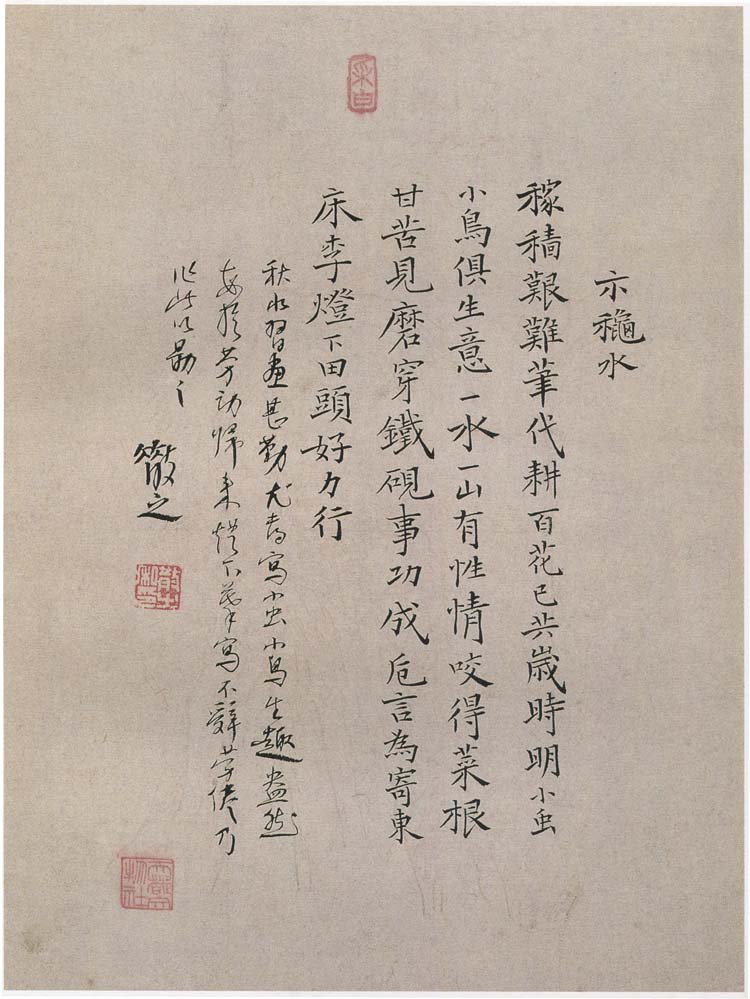 示龝水
稼穡艱難筆代耕百花已共歲時明小虫
小鳥俱生意一水一山有性情咬得菜根
甘苦見磨穿鐵硯事功成卮言為寄東
床李燈下田頭好力行
秋水習畫甚勤尤喜寫小虫小鳥生趣盎然
每於劳动帰来燈下寫不辭劳倦乃
作此以勗之
散之